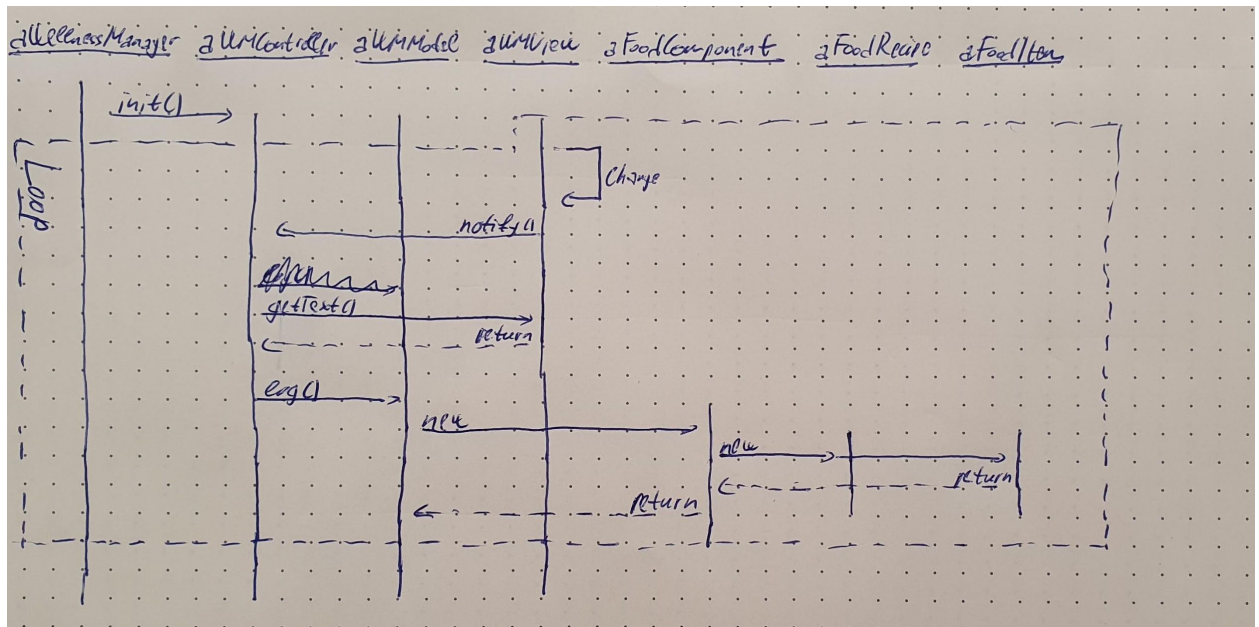 aWellnessManager aWMController aWMModel aWMView aFoodComponent aFoodRecipe aFoodItem
init()
Loop
Change
notify()
getText()
return
log()
new
new
return
return